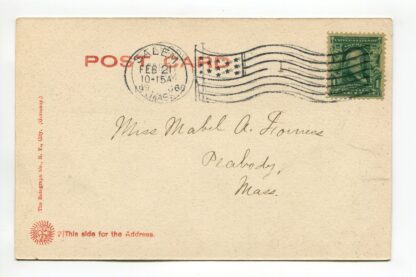 POST CARD
SALEM
FEB 21
10-15A
MASS.
Miss Mabel A.
Peabody,
Mass.
The Rotograph Co., N. Y. City. (Germany.)
This side for the Address.